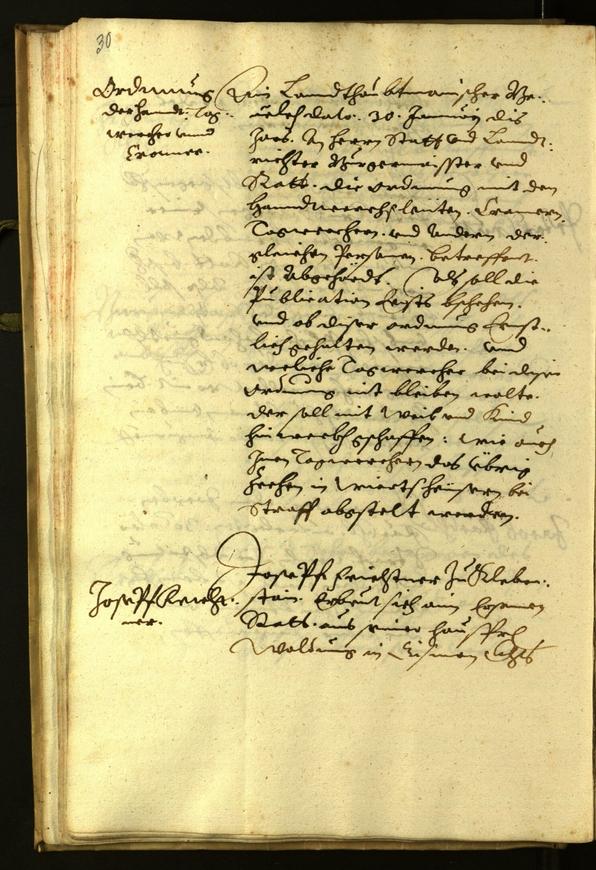 30
Ordnnung
der handt: Tag-
wercher und
Cramer.
Ain Lanndthaubtmanischer Be-
velch dato. 30. Januarij dis
Jars. An herrn Statt und Landt-
richter Burgermaister und
Rath. die ordnung mit den
hanndtwerchsleuten. Cramern,
Tagwerchern. und andern der-
gleichen Personen. betreffent.
ist abgehördt. Als soll die
Publication beschehen.
und ob diser ordnung
lich gehalten werden. und
welliche Tagwercher bei diser
ordnung nit bleiben wolte.
der soll mit Weib und Kind
hinweckh gschaffen: wie auch
Inen Tagwerchern das übrig
Zechen in Wiertsheüsern bei
Straff abgestelt werden.
Joseph
ner.
Joseph Zu Kleben-
stain. Erbeut sich ain
Rath. aus seiner
Waldung in